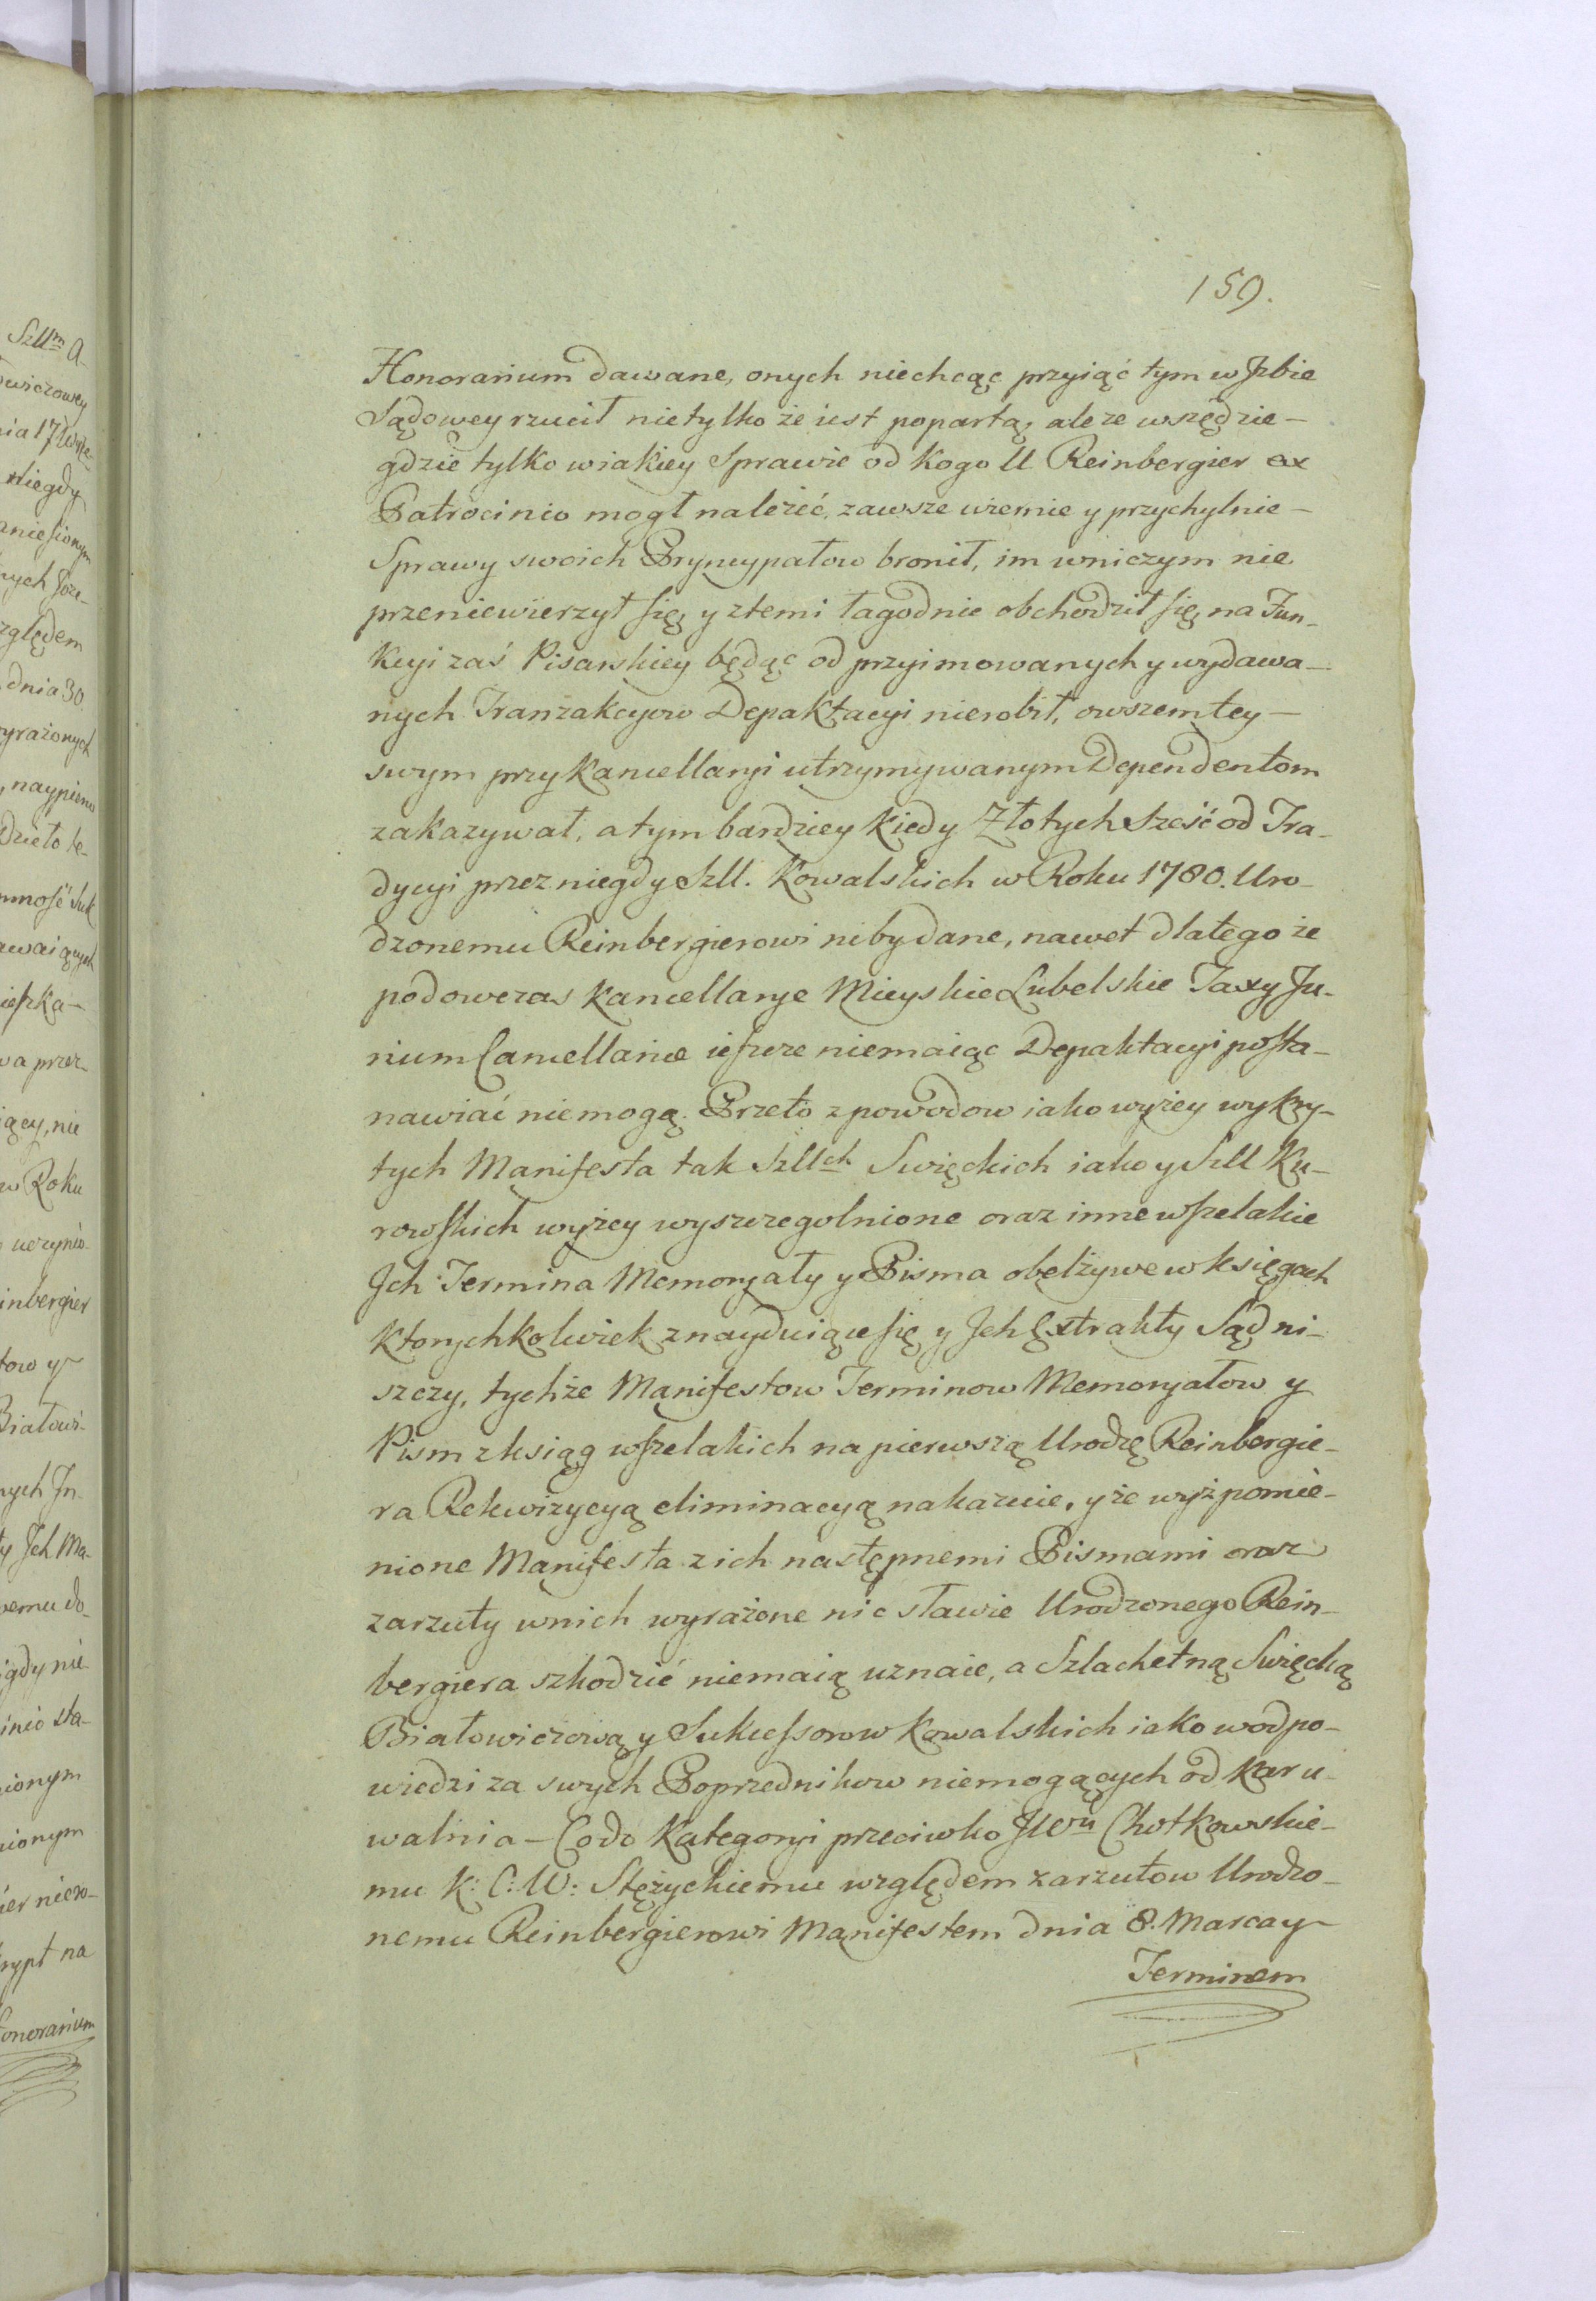 159.
Honorarium dawane, onych niechcąc przyiąć tym w Jzbie
Sądowey rzucił nietylko że iest popartą, ale ze wszędzie –
gdzie tylko wiakiey Sprawie od kogo U Reinbergier ex
Patrocinio mogł należeć, zawsze wiernie y przychylnie –
Sprawy swoich Pryncypałow bronił, im wniczym nie
przeniewierzył się, y ztemi łagodnie obchodził się, na Fun-
kcyi zaś Pisarskiey będąc od przyimowanych y wydawa-
nych Tranzakcyow Depaktacyi nierobił, owszem tey –
swym przy Kancellaryi utrzymywanym Dependentom
zakazywał, a tym bardziey kiedy Złotych Sześć od Tra-
dycyi przez niegdy Szll. Kowalskich w Roku 1780. Uro-
dzonemu Reinbergierowi niby dane, nawet dlatego że
podowczas Kancellarye Mieyskie Lubelskie Taxy Ju-
rium Cancellariæ ieszcze niemaiąc Depaktacyi posta-
nawiać niemogą. Przeto z powodow iako wyżey wykry-
tych Manifesta tak Szllch Swięckich iako y Szll Ku-
rowskich wyżey wyszczegolnione oraz inne wszelakie
Jch Termina Memoryały y Pisma obelżywe w księgach
ktorychkolwiek znayduiące się y Jch Extrakty Sąd ni-
szczy, tychże Manifestow Terminow Memoryałow y
Pism z ksiąg wszelakich na pierwszą Urodzę Reinbergie-
ra Rekwizycyą eliminacyą nakazuie, y że wyż pomie-
nione Manifesta z ich następnemi Pismami oraz
zarzuty wnich wyrażone nic sławie Urodzonego Rein-
bergiera szkodzić niemaią uznaie, a Szlachetną Swięcką
Białowiczową y Sukcessorow Kowalskich iako wodpo-
wiedzi za swych Poprzednikow niemogących od kar u-
walnia – Co do Kategoryi przeciwko JWu Chotkowskie-
mu K: C: W: Stężyckiemu względem zarzutow Urodzo-
nemu Reinbergierowi Manifestem dnia 8. Marca y
Terminem